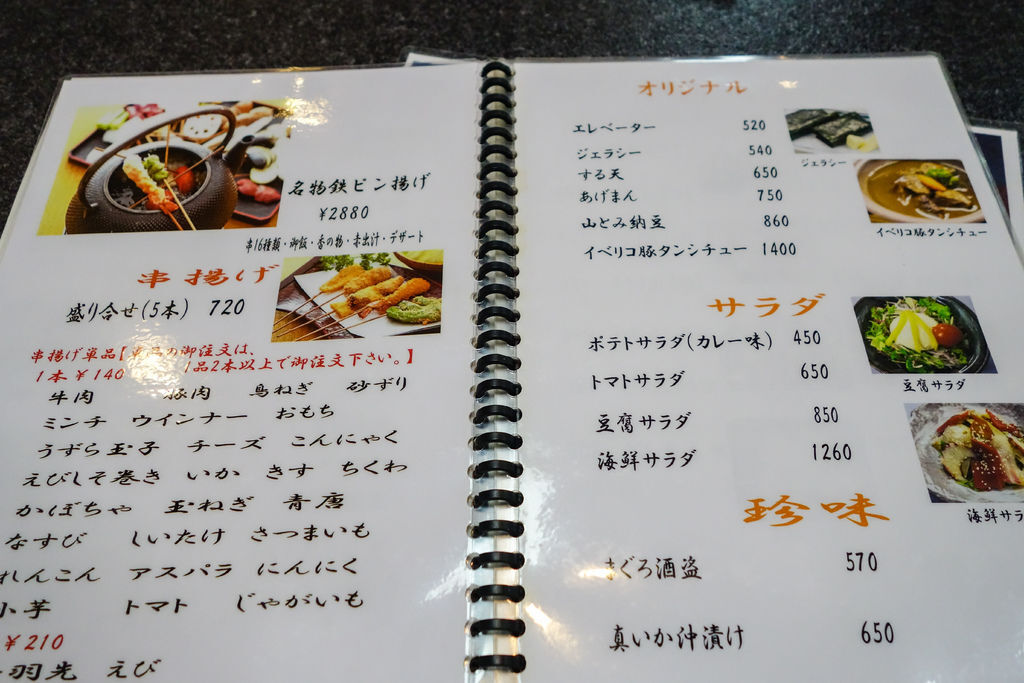 名物鉄ビン揚げ
¥2880
串16種類・御飯・香の物・赤出汁・デザート
串揚げ
盛り合せ(5本) 720
串揚げ単品【単品の御注文は、
1本¥140 1品2本以上で御注文下さい。】
牛肉 豚肉 鳥ねぎ 砂ずり
ミンチ ウインナー おもち
うずら玉子 チーズ こんにゃく
えびしそ巻き いか きす ちくわ
かぼちゃ 玉ねぎ 青唐
なすび しいたけ さつまいも
れんこん アスパラ にんにく
小芋 トマト じゃがいも
¥210
羽先 えび
オリジナル
エレベーター 520
ジェラシー 540
する天 650
あげまん 750
山とみ納豆 860
イベリコ豚タンシチュー 1400
ジェラシー
イベリコ豚タンシチュー
サラダ
ポテトサラダ(カレー味) 450
トマトサラダ 650
豆腐サラダ 850
海鮮サラダ 1260
豆腐サラダ
海鮮サラ
珍味
まぐろ酒盗 570
真いか沖漬け 650